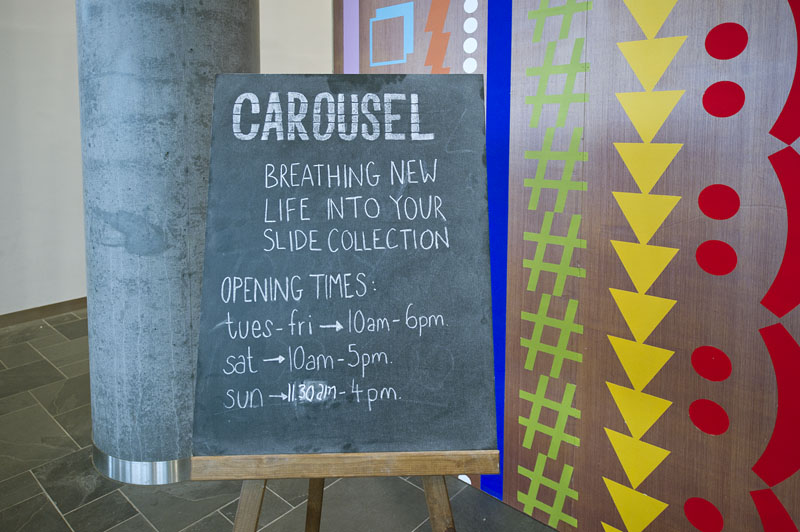 CAROUSEL
BREATHING NEW
LIFE INTO YOUR
SLIDE COLLECTION
OPENING TIMES:
tues-fri → 10am-6pm.
sat → 10am-5pm.
sun → 11.30am-4pm.